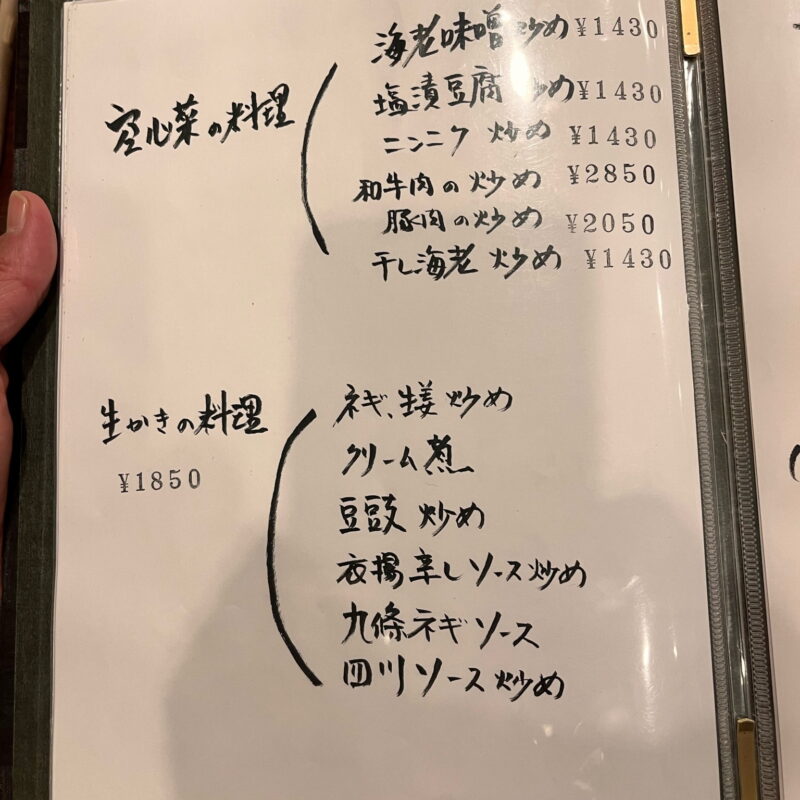 空心菜の料理
海老味噌炒め ¥1430
塩漬豆腐 炒め ¥1430
ニンニク 炒め ¥1430
和牛肉の炒め ¥2850
豚肉の炒め ¥2050
干し海老 炒め ¥1430
生かきの料理
¥1850
ネギ、生姜 炒め
クリーム煮
豆豉 炒め
衣揚辛しソース炒め
九條ネギソース
四川ソース炒め